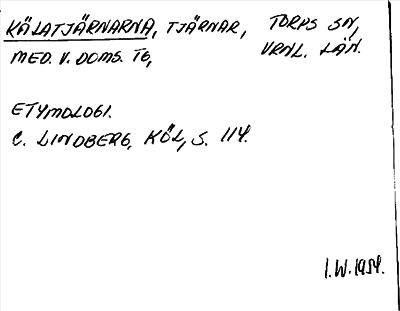 KÄLATJÄRNARNA, TJÄRNAR, TORPS SN,
MED. V. DOMS. TG, VRNL. LÄN.
ETYMOLOGI.
C. LINDBERG, KÖL, S. 114.
I.W. 1954.